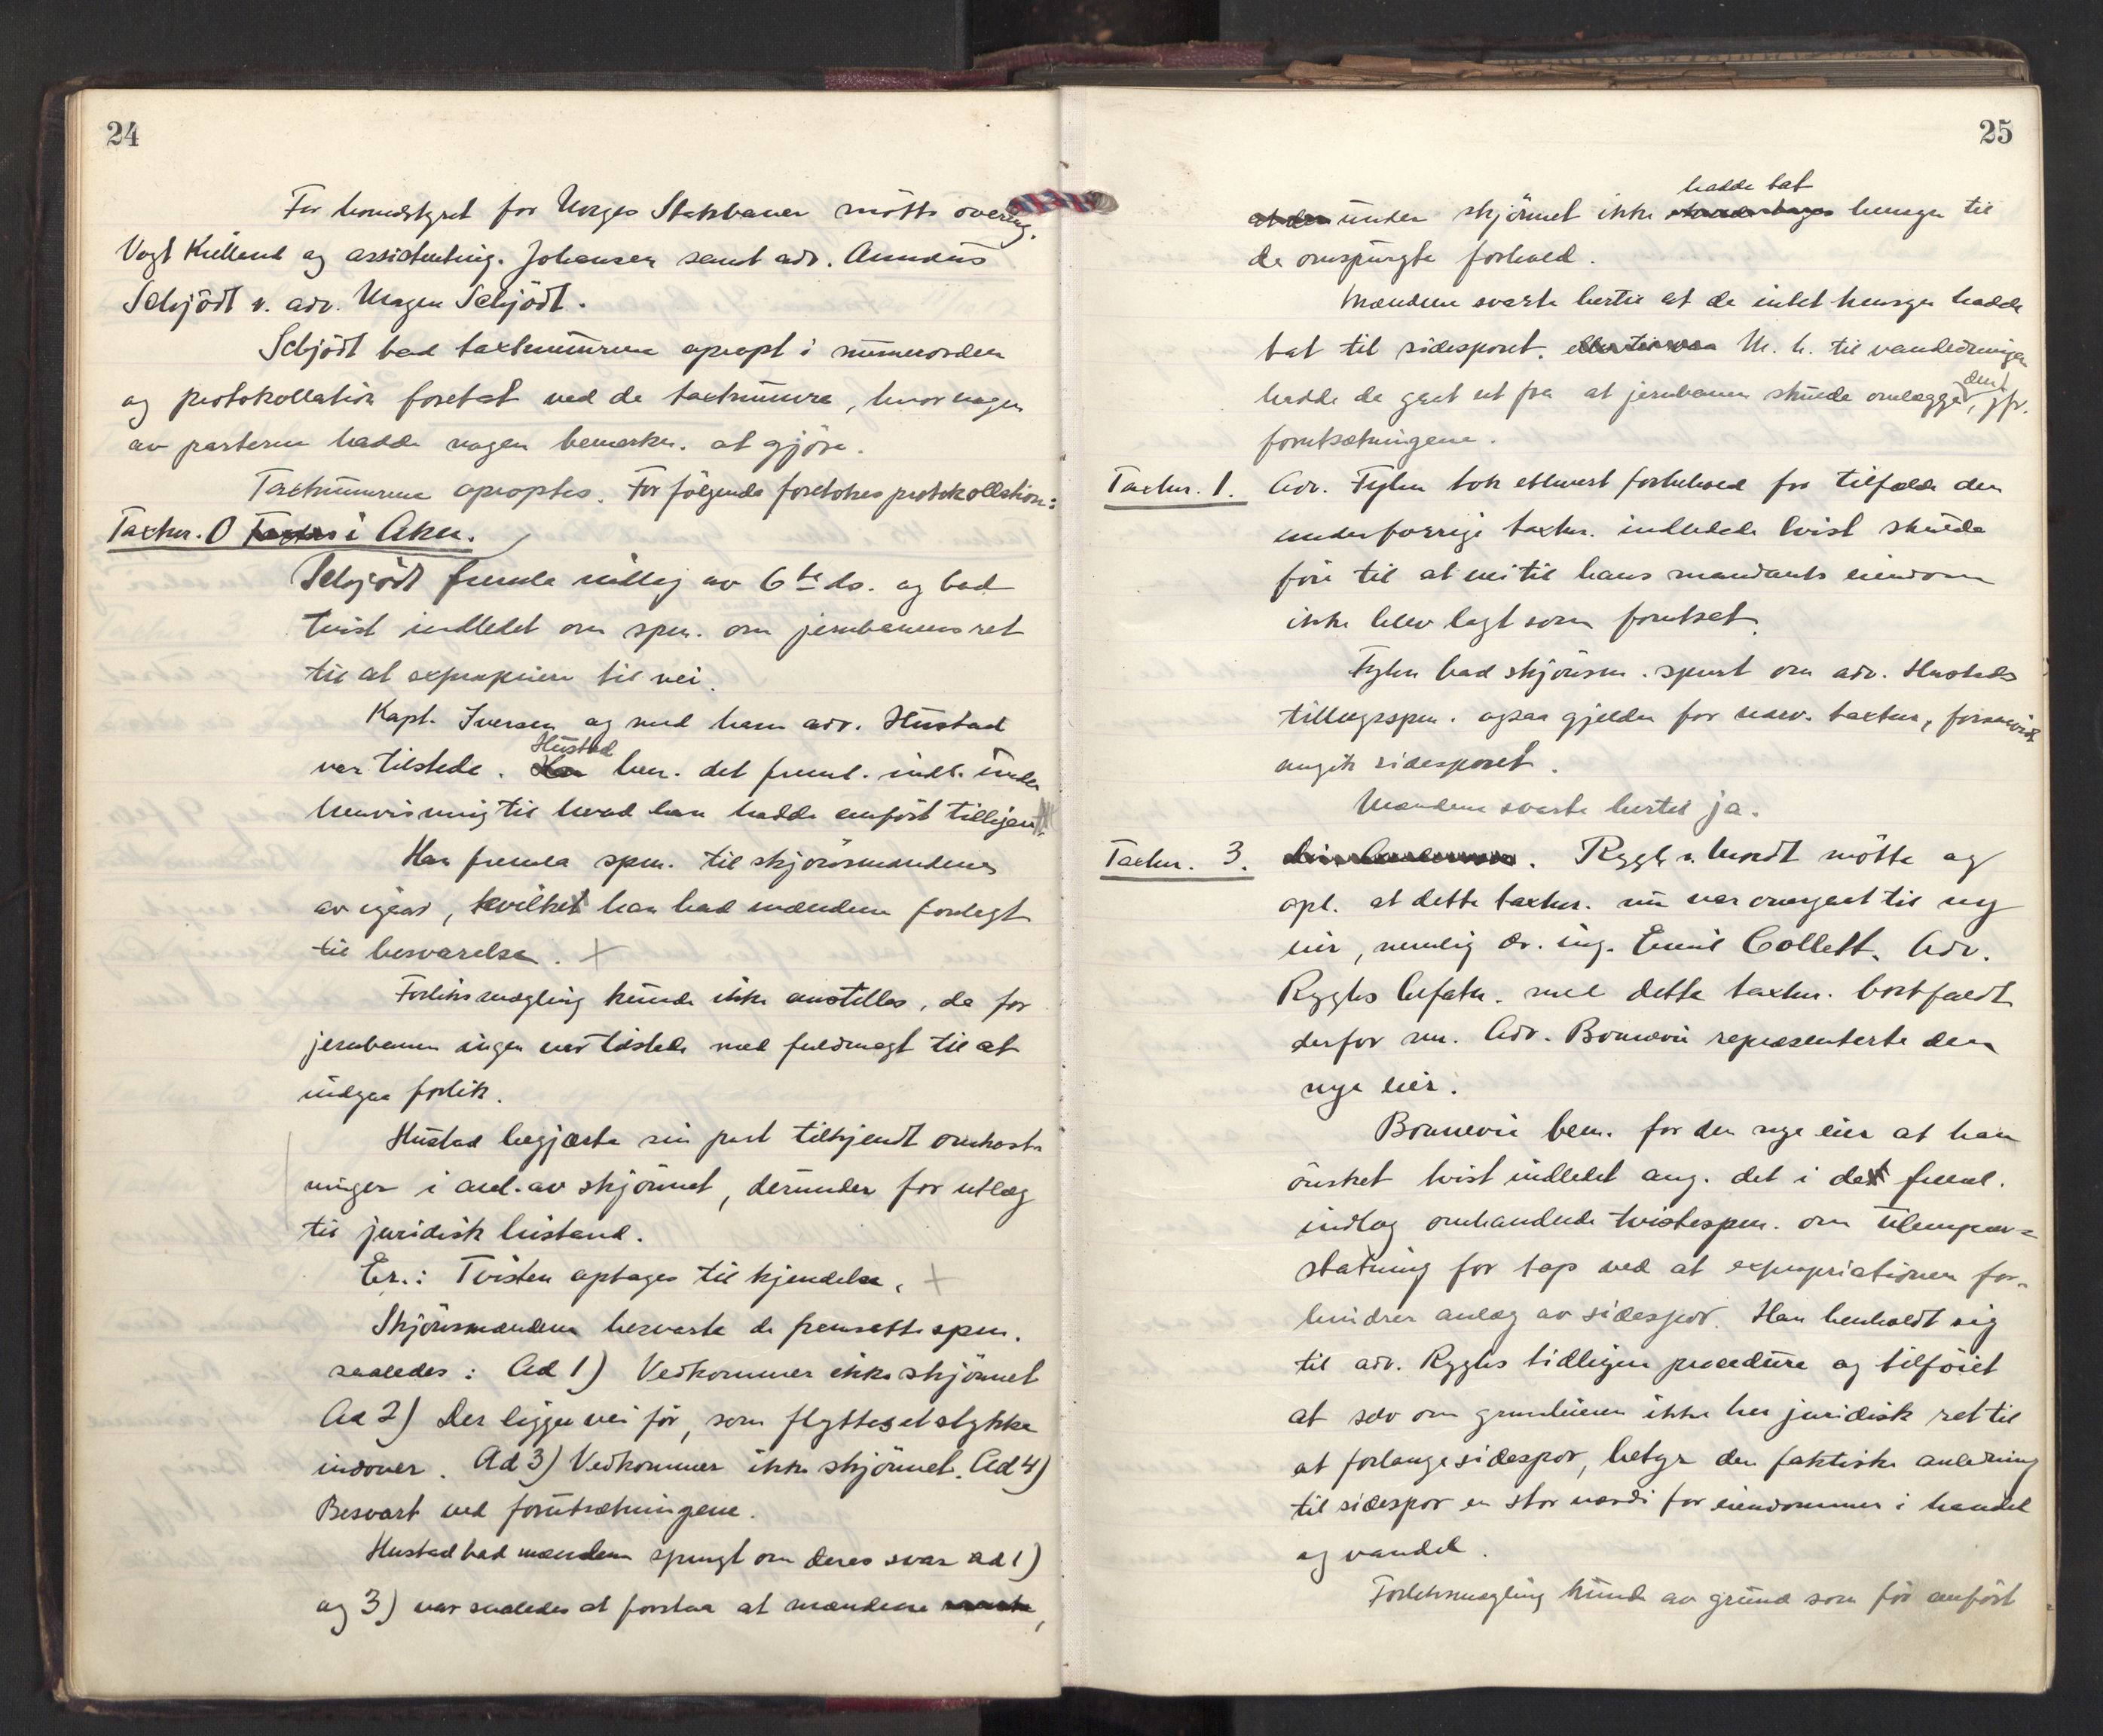 24
For hovedstyret for Norges Statsbaner møtte overing.
Vogt Kielland og assistenting. Johansen samt adv. Annæus
Schjödt v. adv. Mogens Schjödt.
Schjödt bad taxtnumrene opropt i nummerorden
og protokollation foretat ved de taxtnumre, hvor nogen
av parterne hadde nogen bemerkn. at gjöre.
Taxtnumrene oproptes. For følgende foretokes protokollation:
Taxtnr. 0 i Aker.
Schjödt fremla indlæg av 6te ds. og bad
tvist indledet om spm. om jernbanens ret
til at expropriere til vei.
Kapt. Iversen og med ham adv. Hustad
var tilstede. Hustad bem. det freml. indl. under
henvisning til hvad han hadde anført tidligere.
Han fremla spm. til skjönsmændene
av igaar, hvilket han bad mændene forelagt
til besvarelse. +
Forliksmægling kunde ikke anstilles, da for
jernbanen ingen var tilstede med fuldmagt til at
indgaa forlik.
Hustad begjærte sin part tilkjendt omkost-
ninger i anl. av skjönnet, derunder for utlæg
til juridisk bistand.
Er.: Tvisten optages til kjendelse. +
Skjönsmændene besvarte de fremsatte spm.
saaledes: Ad 1) Vedkommer ikke skjönnet
Ad 2) Der ligger vei för, som flyttes et stykke
indover. Ad 3) Vedkommer ikke skjönnet. Ad 4)
Besvart ved forutsætningene.
Hustad bad mændene spurgt om deres svar ad 1)
og 3) var saaledes at forstaa at mændene
25
under skjönnet ikke hadde tat hensyn til
de omspurgte forhold.
Mændene svarte hertil at de intet hensyn hadde
tat til sidesporet. M. h. til vandledningen
hadde de gaat ut fra at jernbanen skulde omlægge den, jfr.
forutsætningene.
Taxtnr. 1. Adv. Fyhn tok ethvert forbehold for tilfælde den
under forrige taxtnr. indledede tvist skulde
före til at vei til hans mandants eiendom
ikke blev lagt som forutsat.
Fyhn bad skjönsm. spurt om adv. Hustads
tillægsspm. ogsaa gjelder for nærv. taxtnr., forsaavidt
angik sidesporet.
Mændene svarte hertil ja.
Taxtnr. 3. Rygh v. Mordt møtte og
opl. at dette taxtnr. nu var overgaat til ny
eier, nemlig dr. ing. Emil Collett. Adv.
Ryghs befatn. med dette taxtnr. bortfaldt
derfor nu. Adv. Bonnevie repræsenterte den
nye eier.
Bonnevie bem. for den nye eier at han
önsket tvist indledet ang. det i det freml.
indlæg omhandlede tvistespm. om ulempeer=
statning for tap ved at expropriationen for-
hindrer anlæg av sidespor. Han henholdt sig
til adv. Ryghs tidligere procedure og tilföiet
at selv om grundeieren ikke har juridisk ret til
at forlange sidespor, betyr den faktiske anledning
til sidespor en stor værdi for eiendommen i handel
og vandel.
Forliksmægling kunde av grund som för anfört